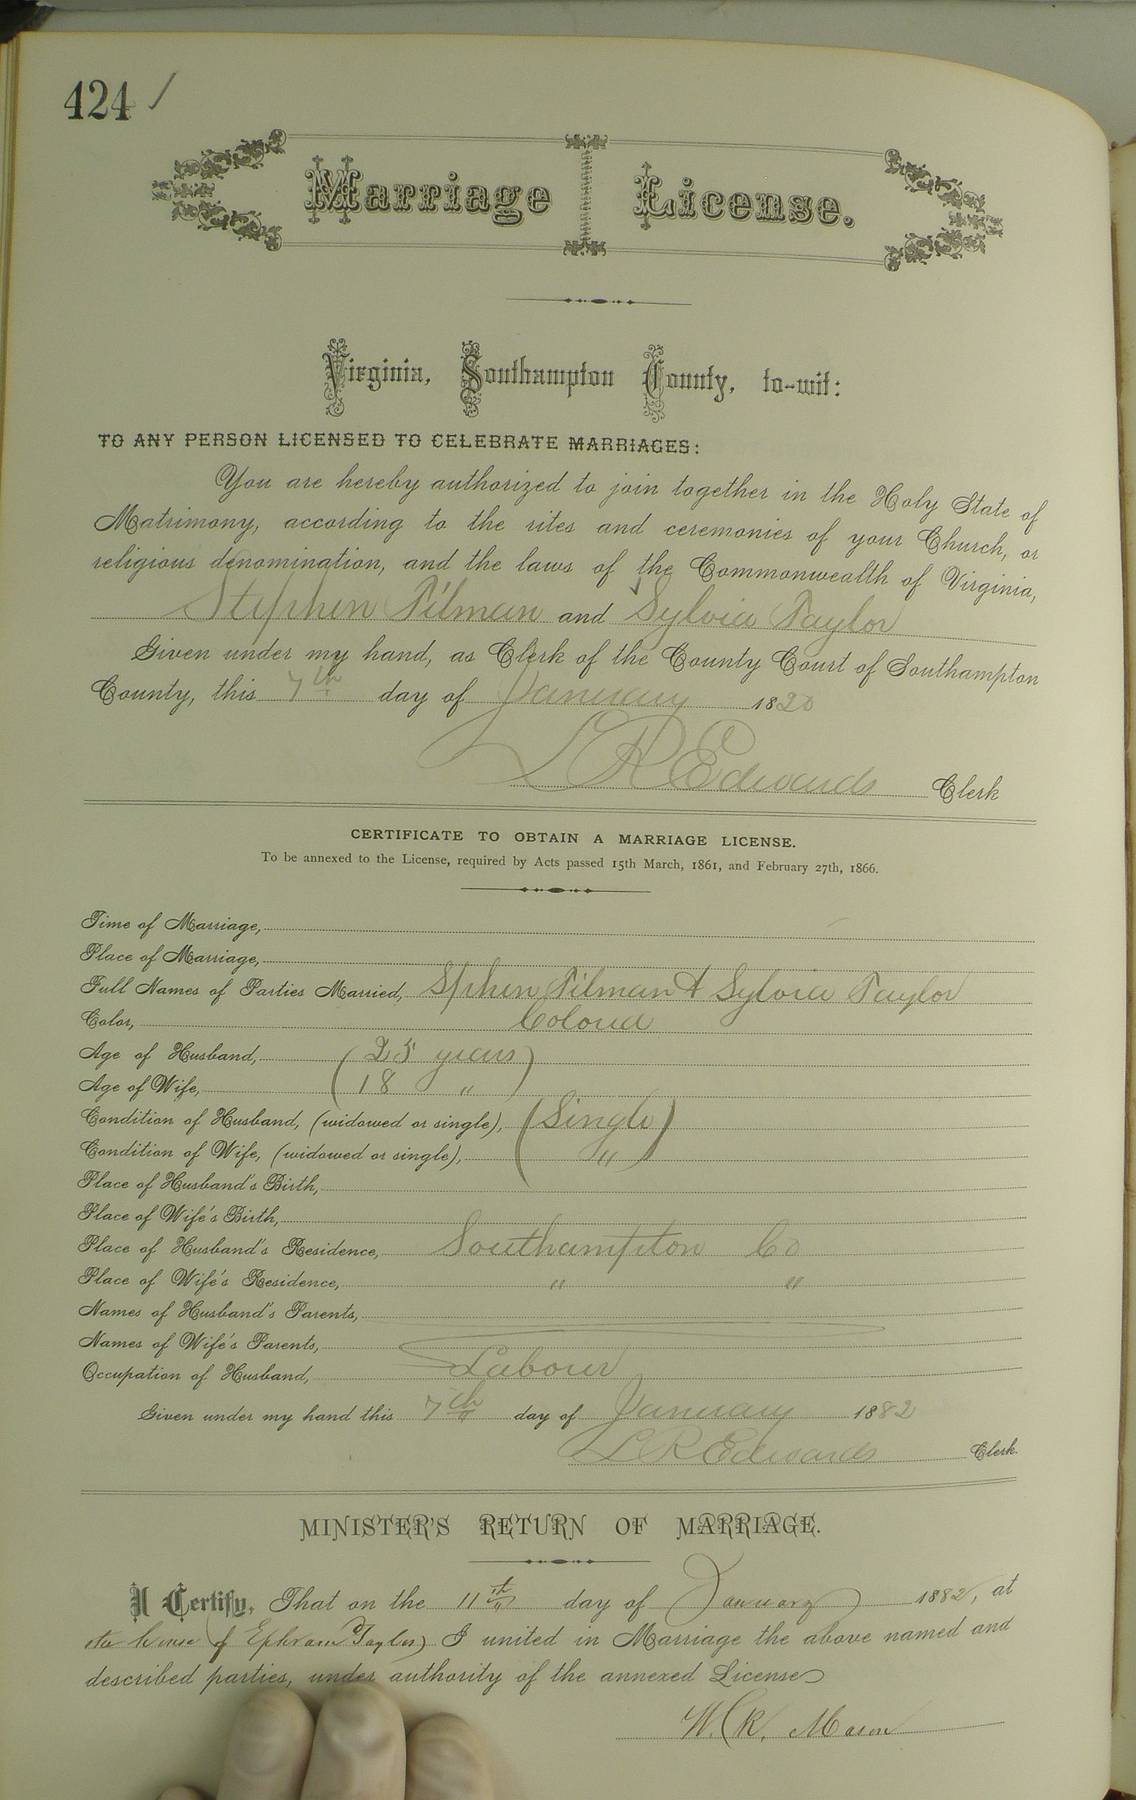 424 /
Marriage License.
Virginia, Southampton County, to-wit:
TO ANY PERSON LICENSED TO CELEBRATE MARRIAGES:
You are hereby authorized to join together in the Holy State of
Matrimony, according to the rites and ceremonies of your Church, or
religious denomination, and the laws of the Commonwealth of Virginia,
Stephen Pilman and Sylvia Taylor
Given under my hand, as Clerk of the County Court of Southampton
County, this 7th day of January 1820
L R Edwards Clerk
CERTIFICATE TO OBTAIN A MARRIAGE LICENSE.
To be annexed to the License, required by Acts passed 15th March, 1861, and February 27th, 1866.
Time of Marriage,
Place of Marriage,
Full Names of Parties Married, Sphen Pilman & Sylvia Taylor
Color, Colored
Age of Husband, (25 years)
Age of Wife, (18 ")
Condition of Husband, (widowed or single), (Single)
Condition of Wife, (widowed or single), ( " )
Place of Husband's Birth,
Place of Wife's Birth,
Place of Husband's Residence, Southampton Co
Place of Wife's Residence, " "
Names of Husband's Parents,
Names of Wife's Parents,
Occupation of Husband, Labourer
Given under my hand this 7th day of January 1882
L R Edwards Clerk.
MINISTER'S RETURN OF MARRIAGE.
I Certify, That on the 11th day of January 1882, at
the house of Ephraim Taylor I united in Marriage the above named and
described parties, under authority of the annexed License
W. R. Mason